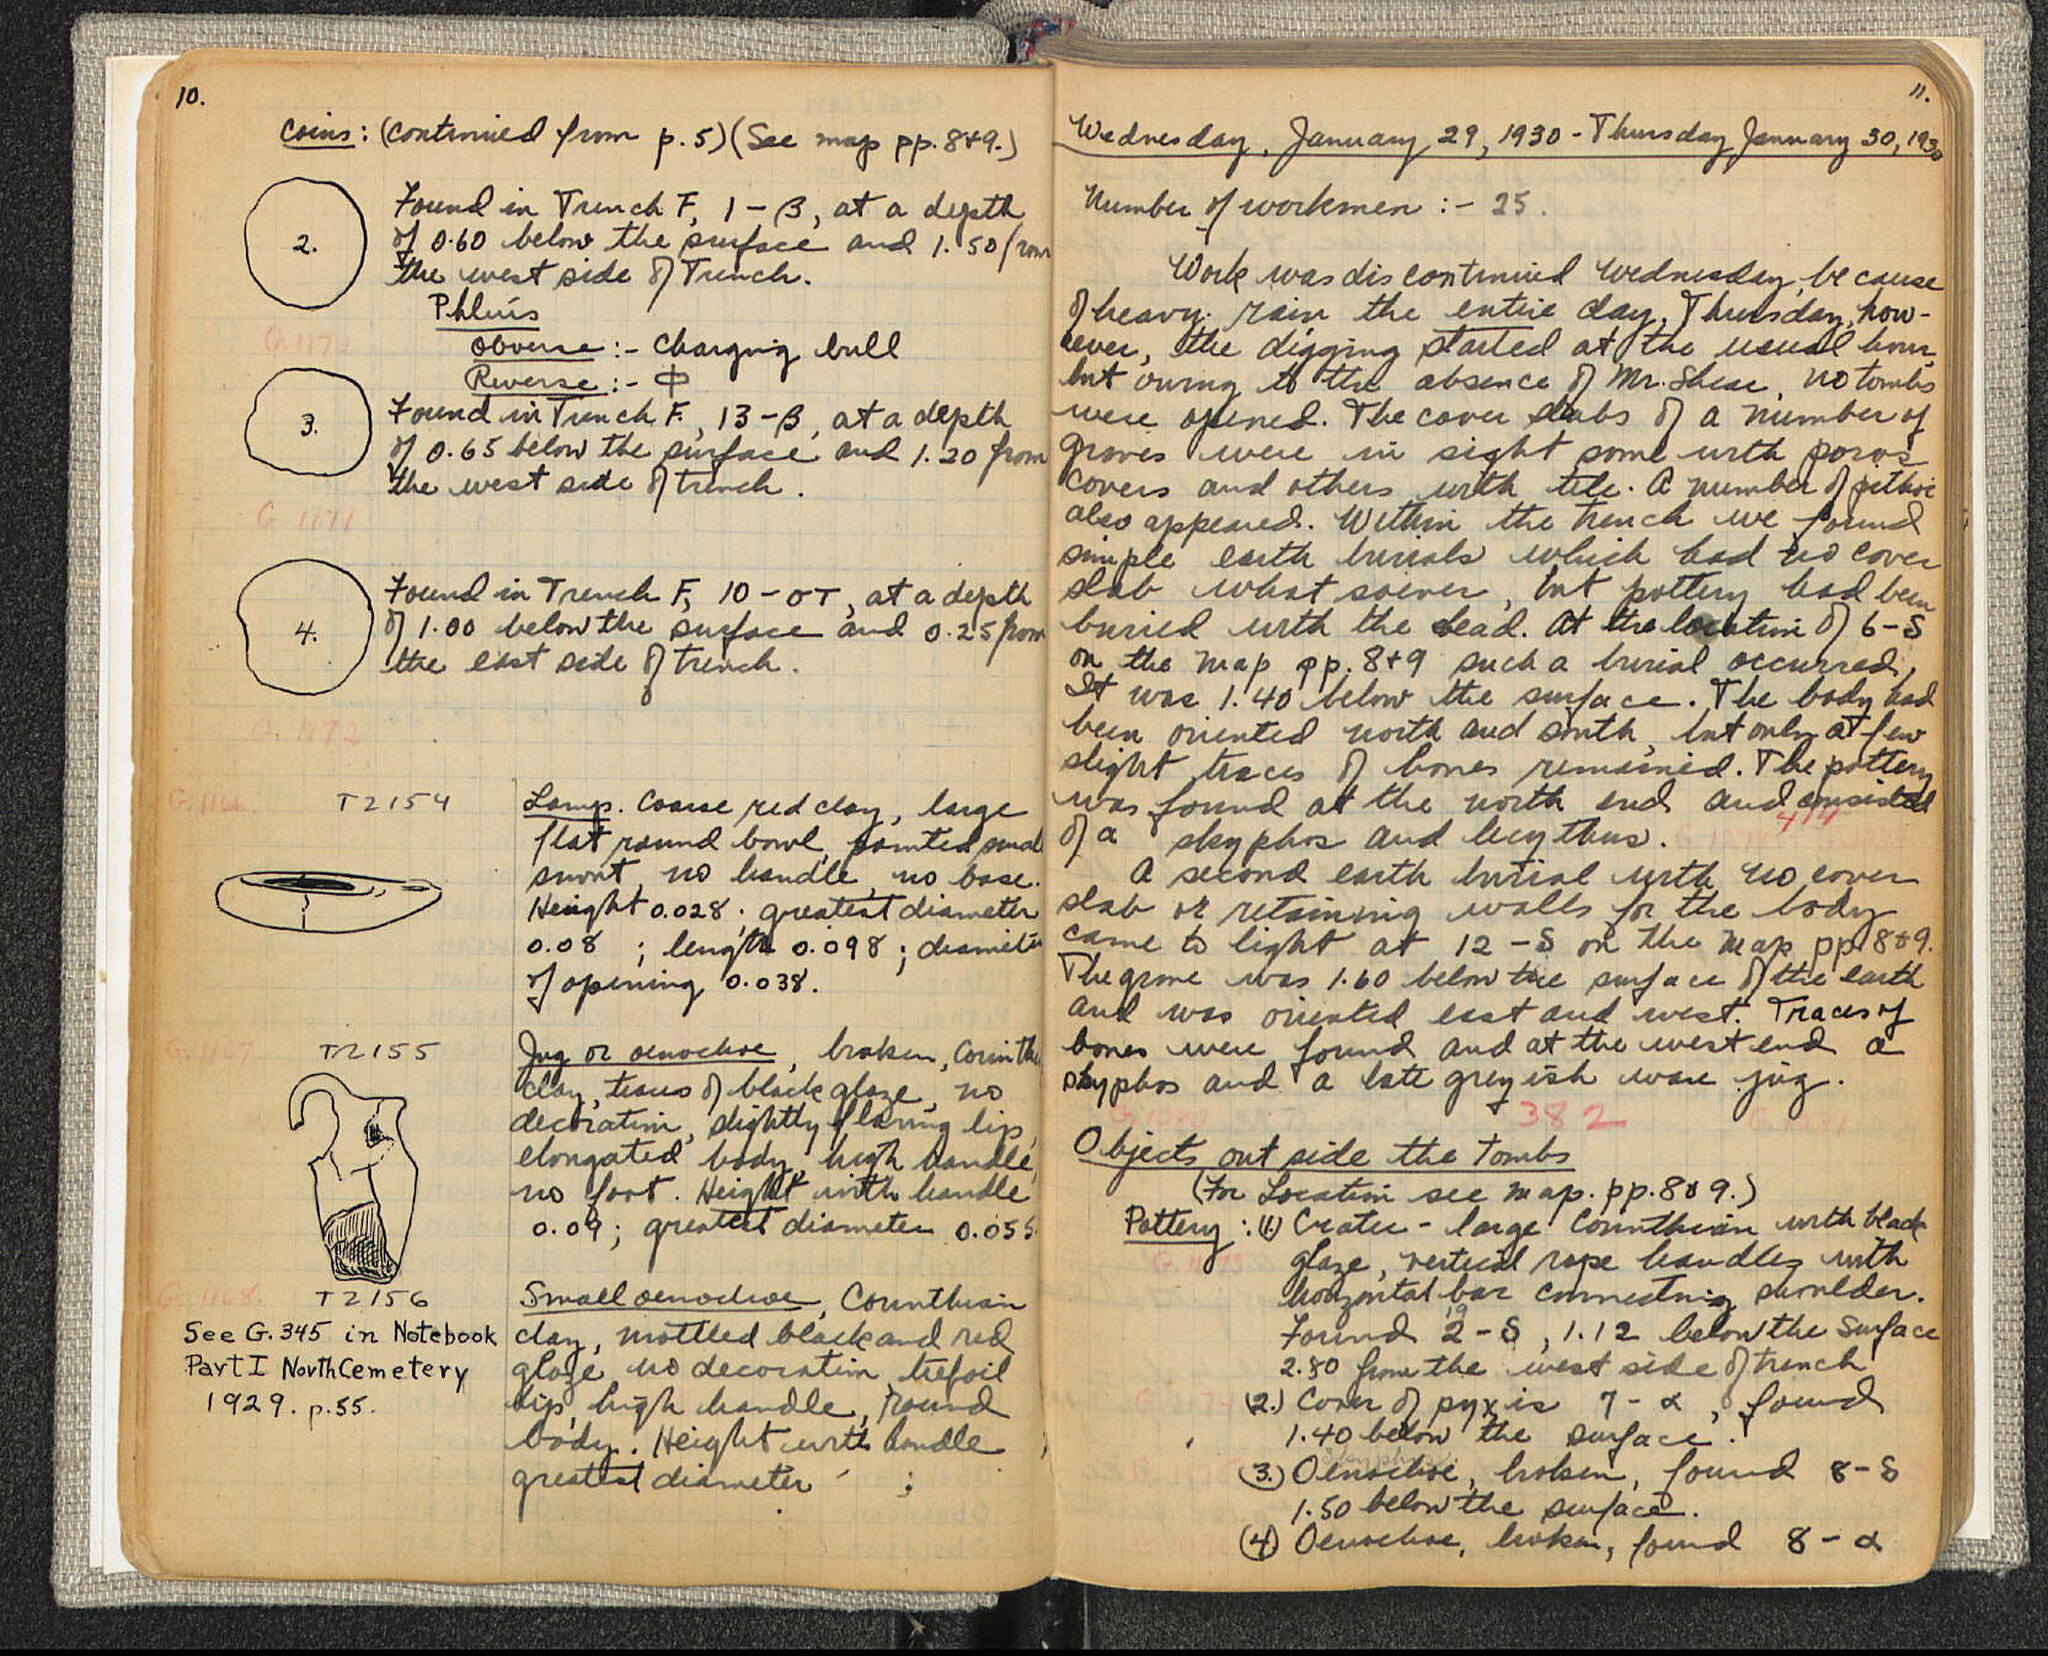 10.
Coins: (continued from p.5) (See map pp. 8+9.)
2.
Found in Trench F, 1-β, at a depth
of 0.60 below the surface and 1.50 from
the west side of Trench.
Phlius
Obverse :- Charging bull
Reverse :- Φ
G. 1170
3.
Found in Trench F, 13-β, at a depth
of 0.65 below the surface and 1.20 from
the west side of trench.
G 1171
4.
Found in Trench F, 10-OT, at a depth
of 1.00 below the surface and 0.25 from
the east side of trench.
G. 1172
G. 1166. T2154
Lamp. Coarse red clay, large
flat round bowl, pointed small
snout, no handle, no base.
Height 0.028; greatest diameter
0.08 ; length 0.098; diameter
of opening 0.038.
G. 1167 T2155
Jug or oenochoe, broken, Corinthian
clay, traces of black glaze, no
decoration, slightly flaring lip,
elongated body, high handle,
no foot. Height with handle
0.09; greatest diameter 0.055.
G. 1168. T2156
See G.345 in Notebook
Part I North Cemetery
1929. p.55.
Small oenochoe, Corinthian
clay, mottled black and red
glaze no decoration, trefoil
lip, high handle, round
body. Height with handle
greatest diameter ;
11.
Wednesday, January 29, 1930 - Thursday, January 30, 1930
Number of workmen :- 25.
Work was discontinued Wednesday, because
of heavy rain the entire day. Thursday, how-
ever, the digging started at the usual hour,
but owing to the absence of Mr. Shear, no tombs
were opened. The cover slabs of a number of
graves were in sight some with poros
covers and others with tile. A number of pithoi
also appeared. Within the trench we found
simple earth burials which had no cover
slab whatsoever, but pottery had been
buried with the dead. At the location of 6-S
on the map pp. 8+9 such a burial occurred,
It was 1.40 below the surface. The body had
been oriented north and south, but only a few
slight traces of bones remained. The pottery
was found at the north end and consisted
of a skyphos and lecythus.
414
A second earth burial with no cover
slab or retaining walls for the body
came to light at 12-S on the map pp. 8+9.
The grave was 1.60 below the surface of the earth
and was oriented east and west. Traces of
bones were found and at the west end a
skyphos and a late greyish ware jug.
382
Objects outside the Tombs
(For Location see map. pp. 8+9.)
Pottery: (1.) Crater - large Corinthian with black
glaze, vertical rope handles with
horizontal bar connecting shoulder.
Found 2-S, 1.12 below the surface
2.80 from the west side of trench
(2.) Cover of pyxis 7-α, found
1.40 below the surface.
(3.) Oenochoe, broken, found 8-S
1.50 below the surface.
(4.) Oenochoe, broken, found 8-α